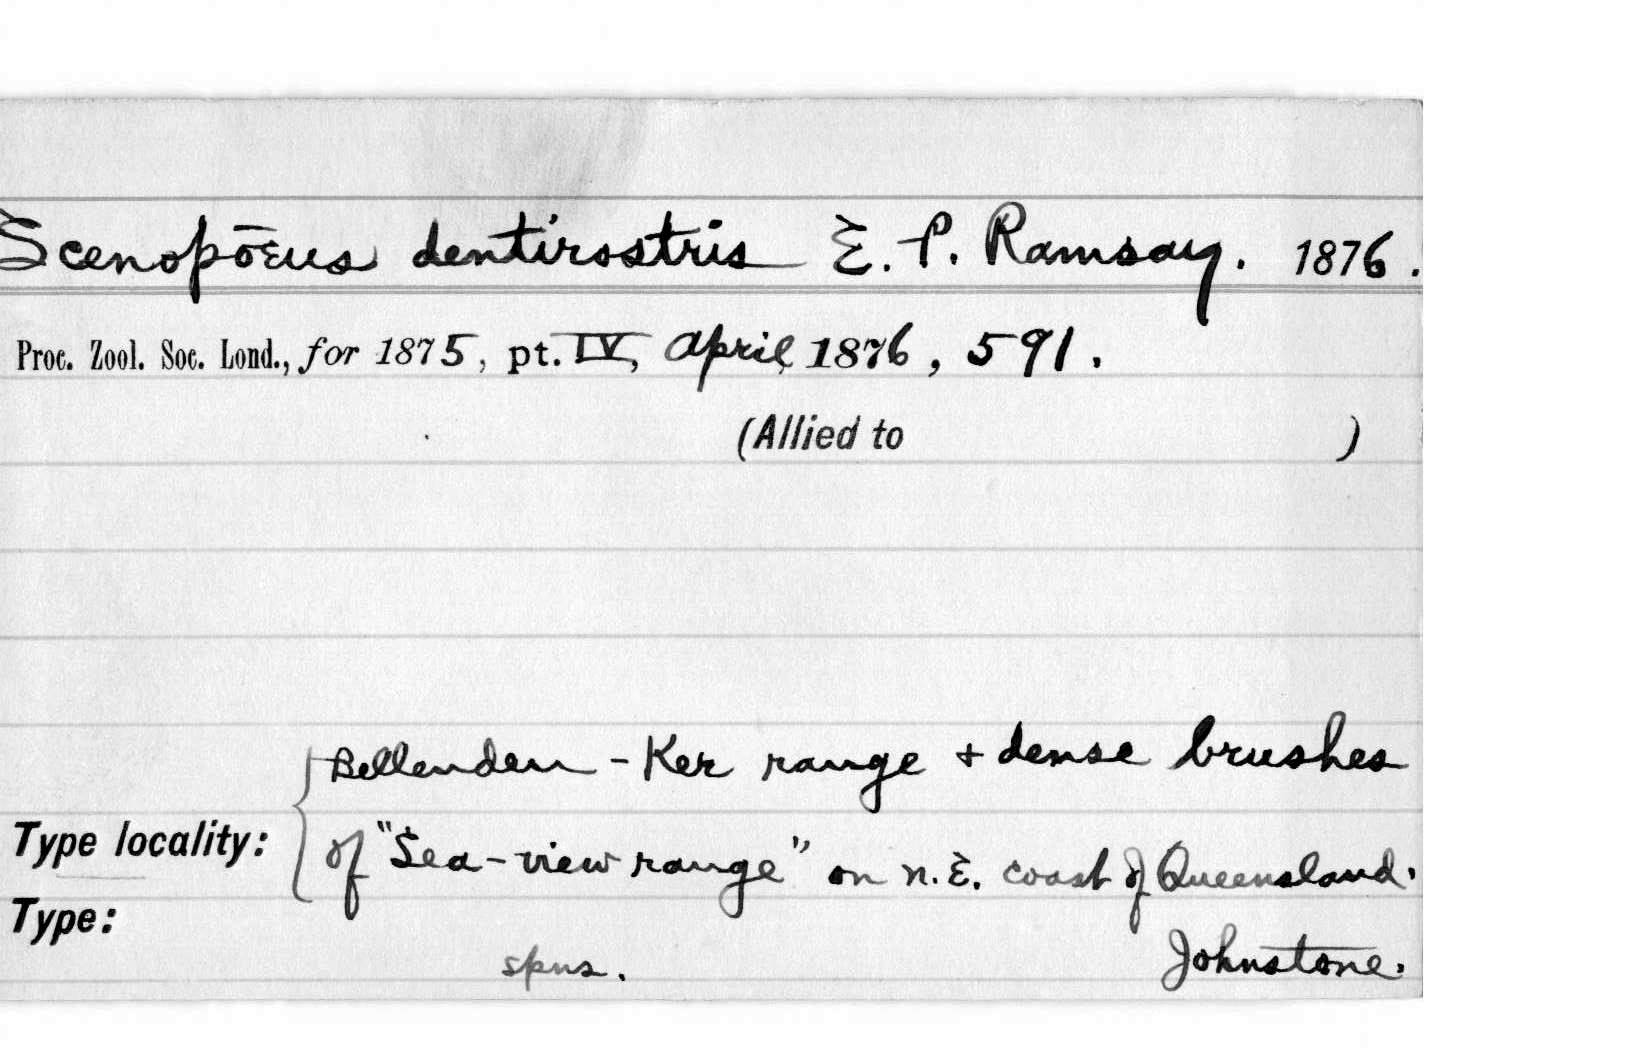 Scenopōeus dentirostris E. P. Ramsay. 1876.
Proc. Zool. Soc. Lond., for 1875, pt. IV, April, 1876, 591.
(Allied to )
Bellenden-Ker range + dense brushes
Type locality: of "Sea-view range" on N.E. coast of Queensland.
Type:
spns. Johnstone.